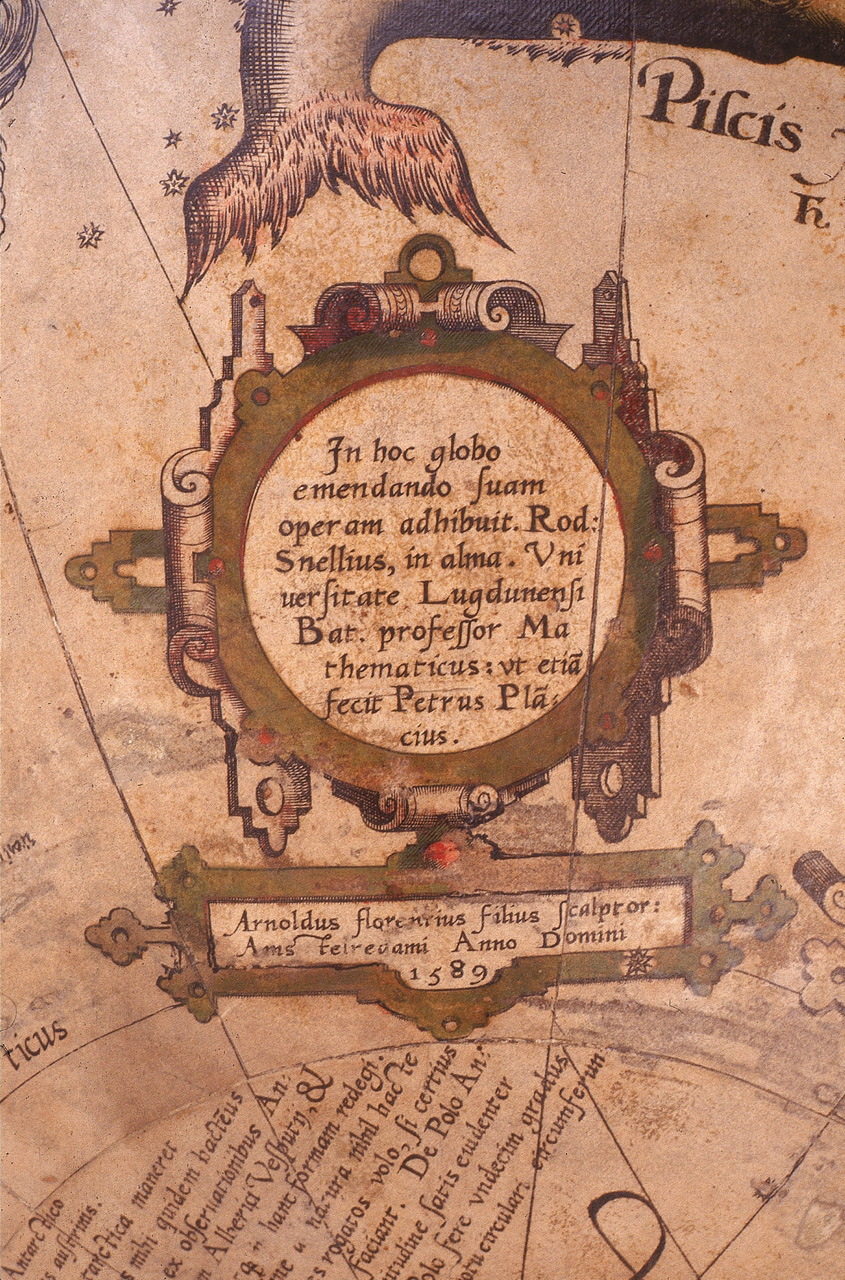 Piſcis
ħ
In hoc globo
emendando ſuam
operam adhibuit. Rod:
Snellius, in alma. Vni
uerſitate Lugdunenſi
Bat: profeſſor Ma
thematicus: vt etiā
fecit Petrus Plā:
cius.
Arnoldus florentius filius ſcalptor:
Amsteiredami Anno Domini
1589
ticus
Antarctico
auſtrinis.
maneret
mihi quidem hactēus
ex obſeruationibus An:
Alberici Veſputij, &
hanc formam redegi.
natura nihil hac te
rogatos volo, ſi certius
faciant. De Polo An:
ſatis euidenter
Polo fere vndecim gradus
circulari circumferun